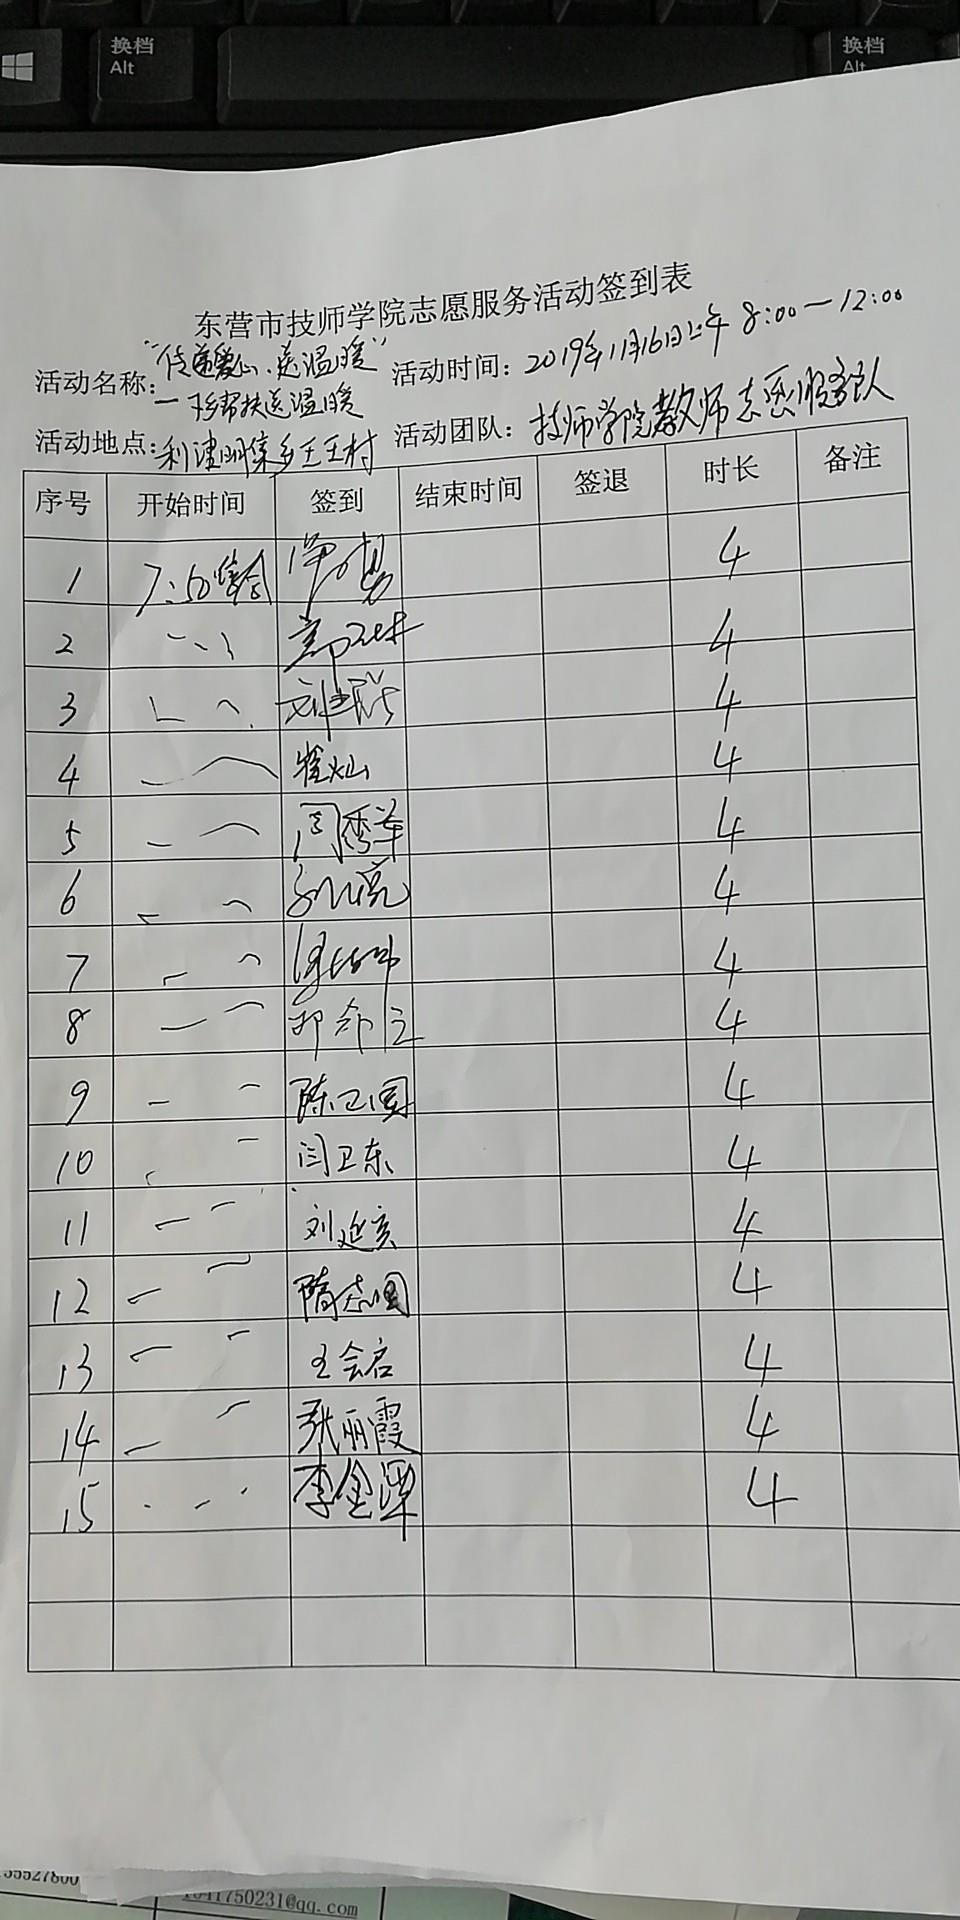 换档
Alt
换档
Alt
东营市技师学院志愿服务活动签到表
活动名称："传递爱心、送温暖"
—下乡帮扶送温暖
活动时间：2019年11月16日上午 8:00—12:00
活动地点：利津明集乡王王村
活动团队：技师学院教师志愿服务队
序号 开始时间 签到 结束时间 签退 时长 备注
1 7:50集合 4
2 4
3 4
4 崔灿 4
5 周秀萍 4
6 4
7 4
8 4
9 陈卫国 4
10 闫卫东 4
11 刘延亥 4
12 隋志国 4
13 王会启 4
14 张丽霞 4
15 李金潭 4
35527800
1041750231@qq.com